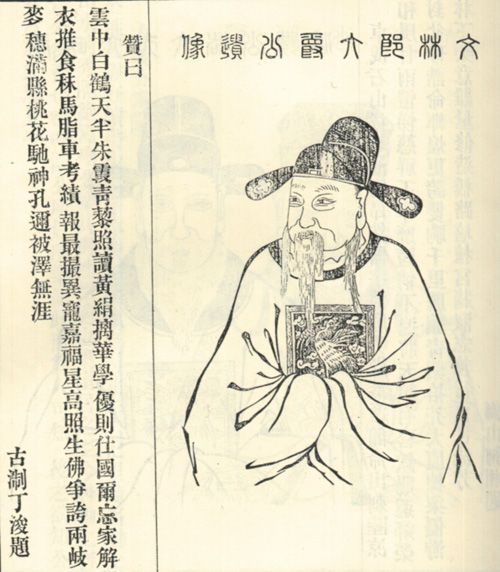 文林郎六爵公遺像
贊曰
雲中白鶴天半朱霞靑藜照讀黃絹摛華學優則仕國爾忘家解
衣推食秣馬脂車考績報最撮異寵嘉福星高照生佛爭誇兩岐
麥穗滿縣桃花馳神孔邇被澤無涯
古淛丁浚題